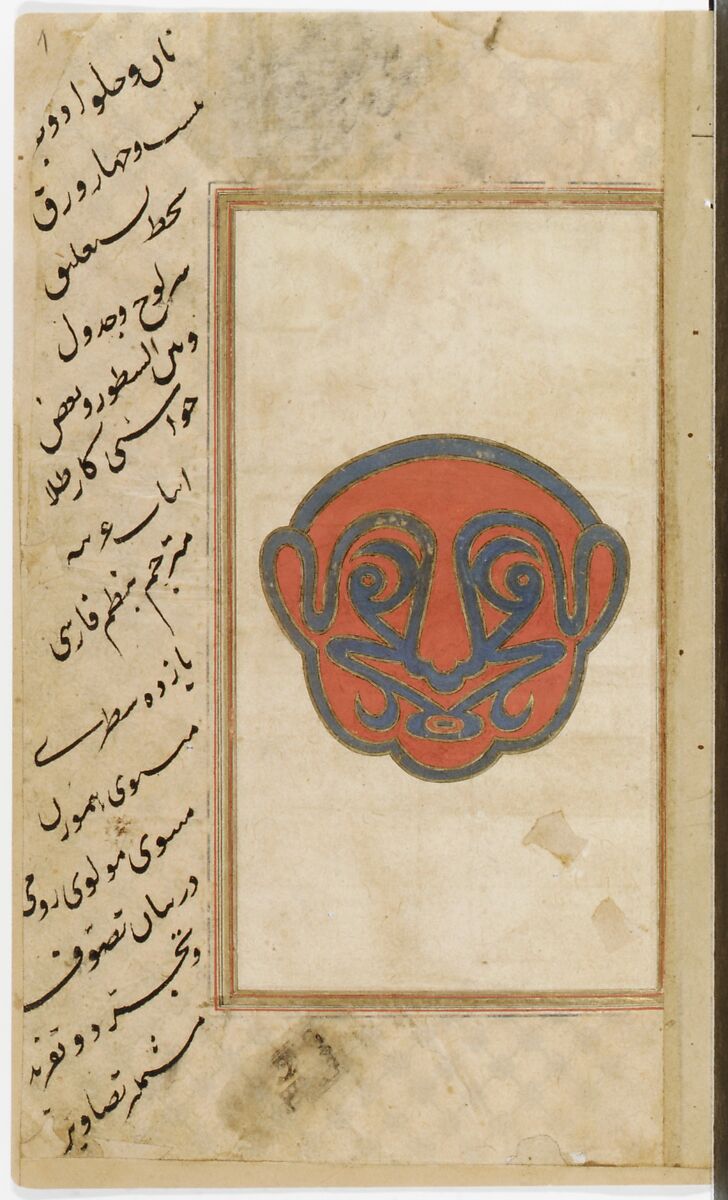 ۱
نان و حلوا دو
بیست و چهار ورق
بخط نستعلیق
سرلوح و جدول
و بین السطور و بعض
حواشی کار طلا
مترجم بنظم فارسی
یازده سطری
مثنوی هموزن
مثنوی مولوی رومی
در بیان تصوف
و تجرد و تفرید
مشتمله تصاویر